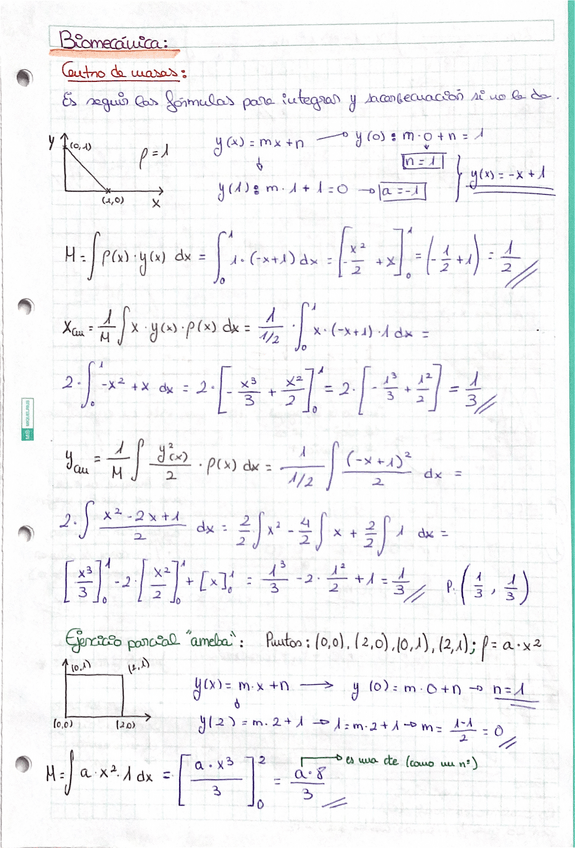 Biomecánica:
Centro de masas:
Es seguir las fórmulas para integrar y sacar ecuación si no la da.
y (0,1) ρ = 1 (1,0) x
y(x) = mx + n → y(0): m·0 + n = 1
n = 1
y(1): m·1 + 1 = 0 → a = -1 } y(x) = -x + 1
M = ∫ ρ(x)·y(x) dx = ∫₀¹ 1·(-x+1) dx = [-x²/2 + x]₀¹ = (-1/2 + 1) = 1/2
x_CM = 1/M ∫ x·y(x)·ρ(x) dx = 1/(1/2) · ∫₀¹ x·(-x+1)·1 dx =
2·∫₀¹ -x² + x dx = 2·[-x³/3 + x²/2]₀¹ = 2·[-1³/3 + 1²/2] = 1/3
y_CM = 1/M ∫ y²(x)/2 · ρ(x) dx = 1/(1/2) ∫ (-x+1)²/2 dx =
2·∫ (x² - 2x + 1)/2 dx = 2/2 ∫ x² - 4/2 ∫ x + 2/2 ∫ 1 dx =
[x³/3]₀¹ - 2·[x²/2]₀¹ + [x]₀¹ = 1³/3 - 2·1²/2 + 1 = 1/3 P.(1/3, 1/3)
Ejercicio parcial "ameba": Puntos: (0,0), (2,0), (0,1), (2,1); ρ = a·x²
(0,1) (2,1) (0,0) (2,0)
y(x) = m·x + n → y(0) = m·0 + n → n = 1
y(2) = m·2 + 1 → 1 = m·2 + 1 → m = (1-1)/2 = 0
M = ∫ a·x²·1 dx = [a·x³/3]₀² = a·8/3 → es una cte (como un nº)